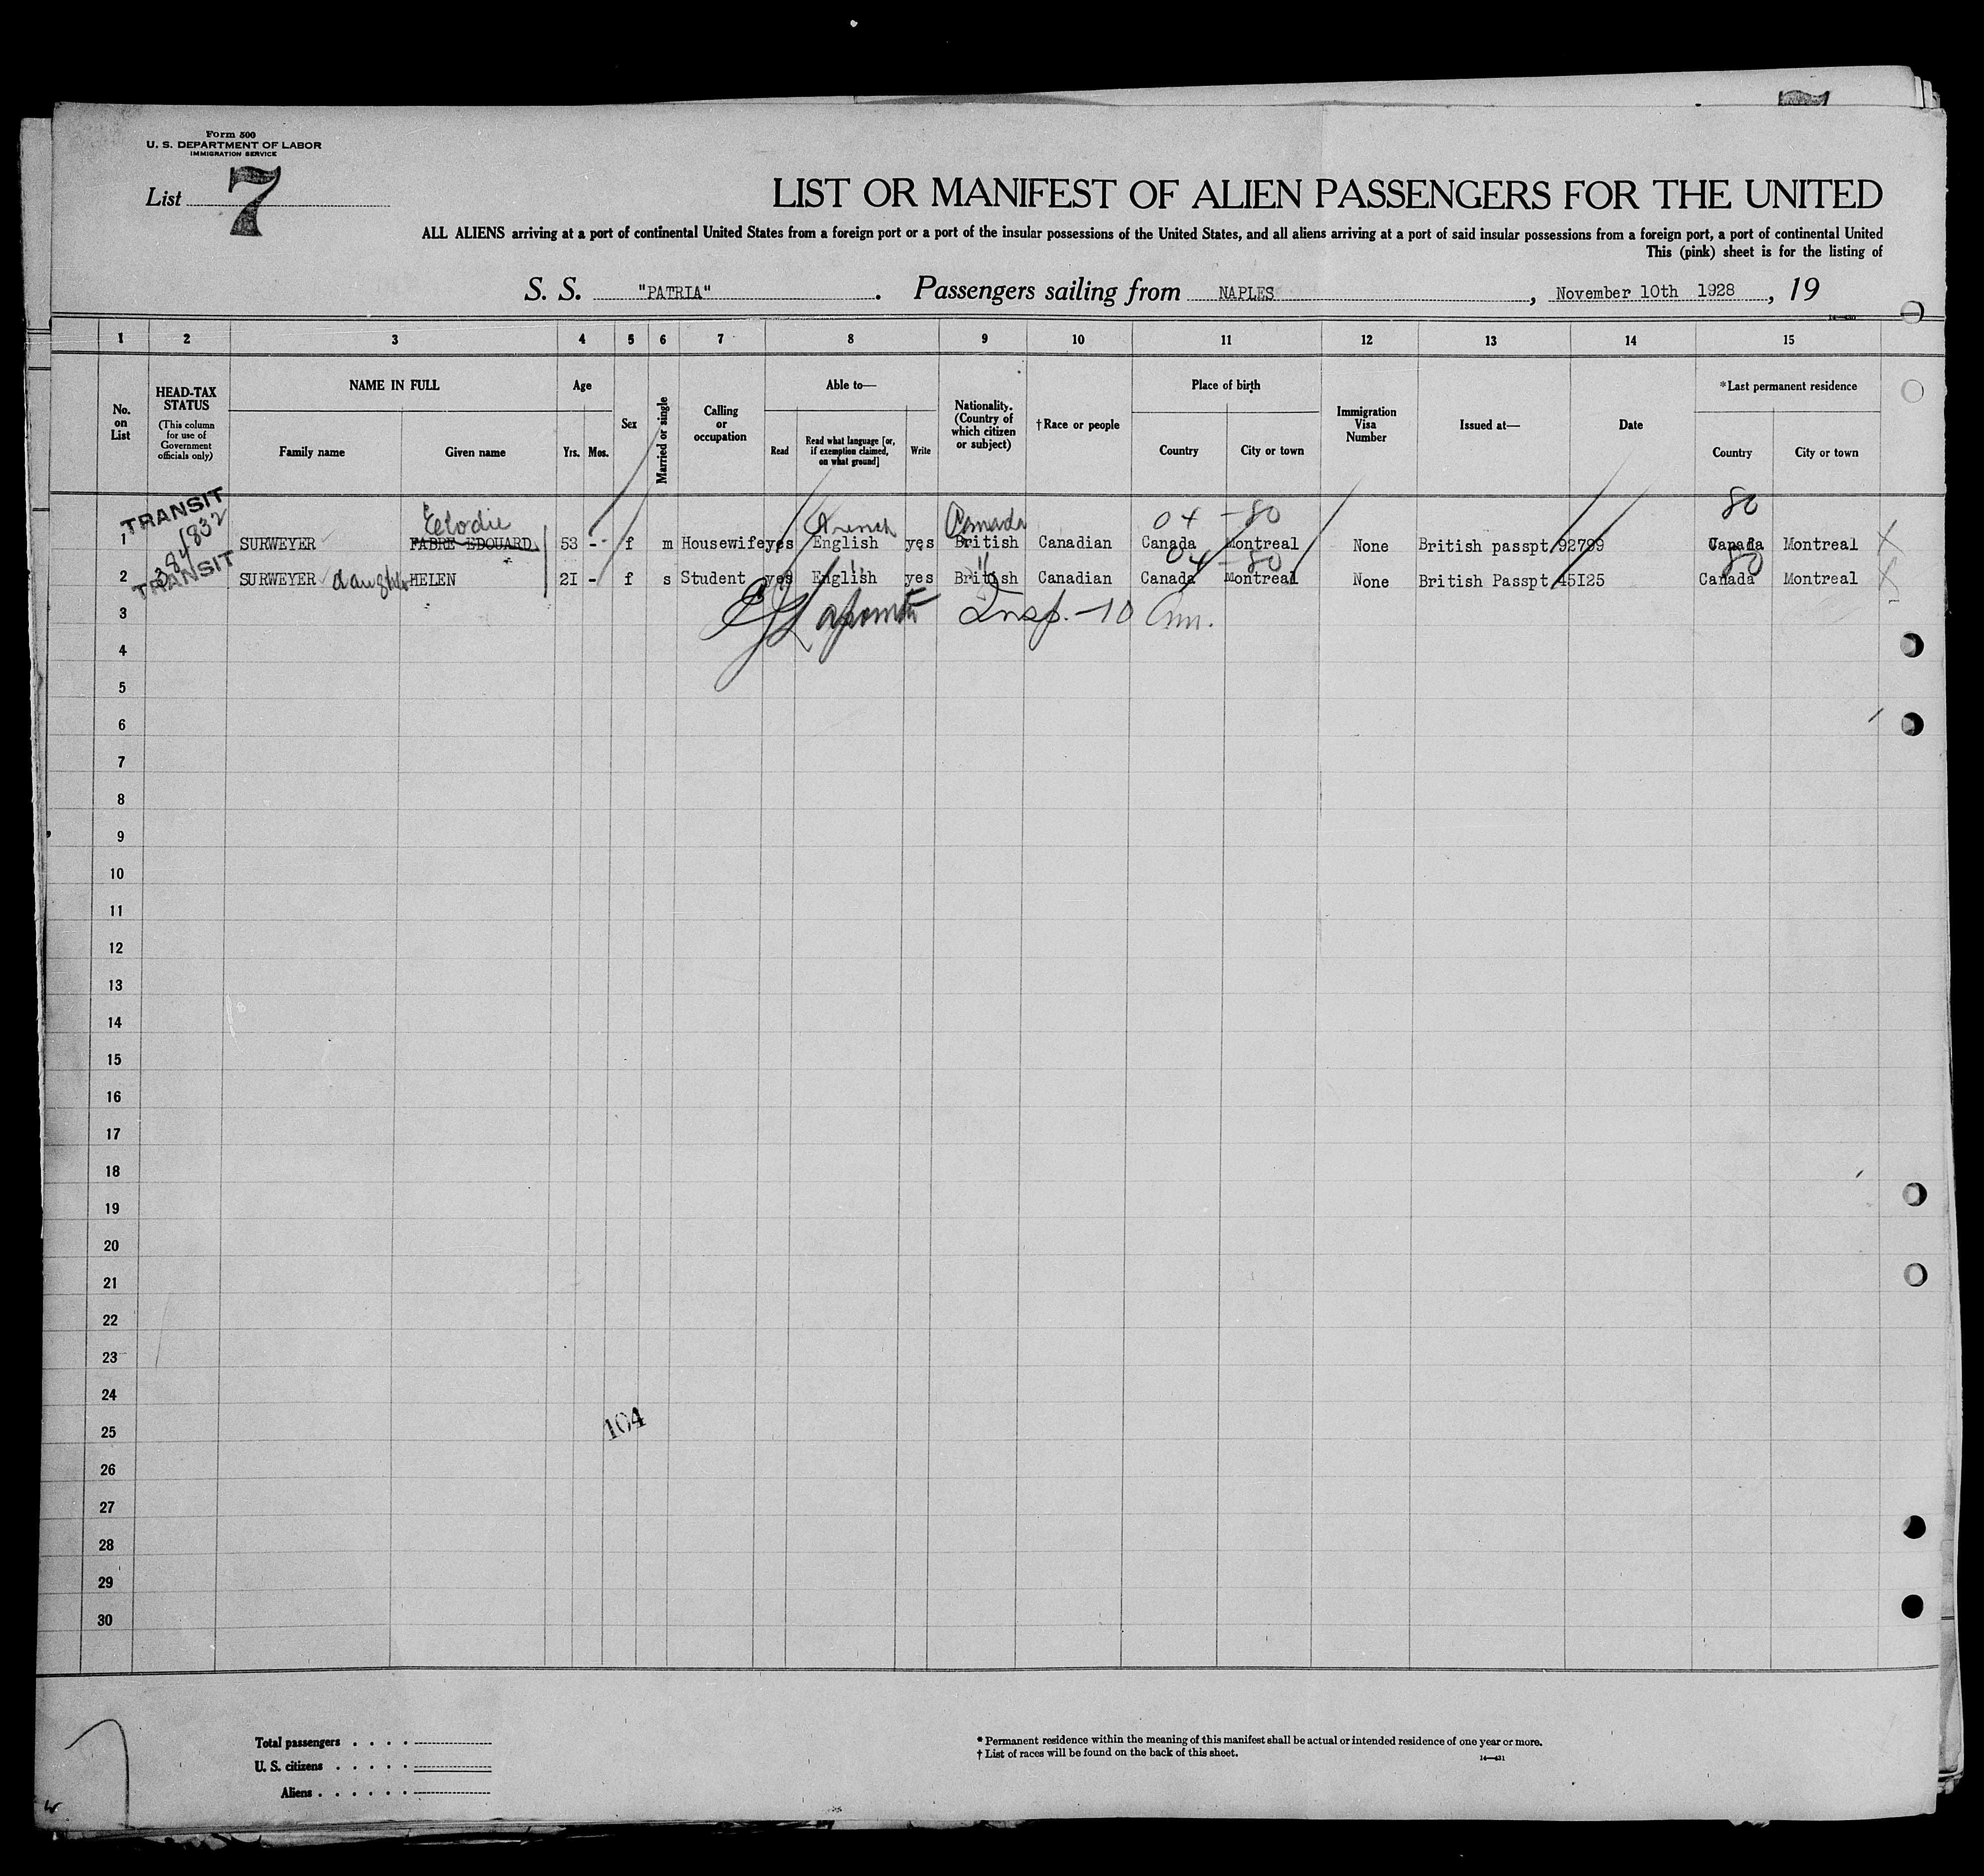 Form 500
U. S. DEPARTMENT OF LABOR
IMMIGRATION SERVICE
List 7
LIST OR MANIFEST OF ALIEN PASSENGERS FOR THE UNITED
ALL ALIENS arriving at a port of continental United States from a foreign port or a port of the insular possessions of the United States, and all aliens arriving at a port of said insular possessions from a foreign port, a port of continental United
This (pink) sheet is for the listing of
S. S. "PATRIA" . Passengers sailing from NAPLES , November 10th 1928 , 19
1 2 3 4 5 6 7 8 9 10 11 12 13 14 15
No. on List
HEAD-TAX STATUS
(This column for use of Government officials only)
NAME IN FULL
Family name Given name
Age
Yrs. Mos.
Sex
Married or single
Calling or occupation
Able to—
Read
Read what language [or, if exemption claimed, on what ground]
Write
Nationality. (Country of which citizen or subject)
†Race or people
Place of birth
Country City or town
Immigration Visa Number
Issued at—
Date
*Last permanent residence
Country City or town
TRANSIT
Elodie French Canada 04 - 80 80
1 SURWEYER FABRE EDOUARD 53 - f m Housewife yes English yes British Canadian Canada Montreal None British passpt 92799 Canada Montreal X
384832
TRANSIT
" " 04 - 80 80
2 SURWEYER daughter HELEN 2I - f s Student yes English yes British Canadian Canada Montreal None British Passpt 45I25 Canada Montreal X
3 Insp. - 10
4
5
6
7
8
9
10
11
12
13
14
15
16
17
18
19
20
21
22
23
24
104
25
26
27
28
29
30
Total passengers . . . .
U. S. citizens . . . . .
Aliens . . . . . .
* Permanent residence within the meaning of this manifest shall be actual or intended residence of one year or more.
† List of races will be found on the back of this sheet.
14—431